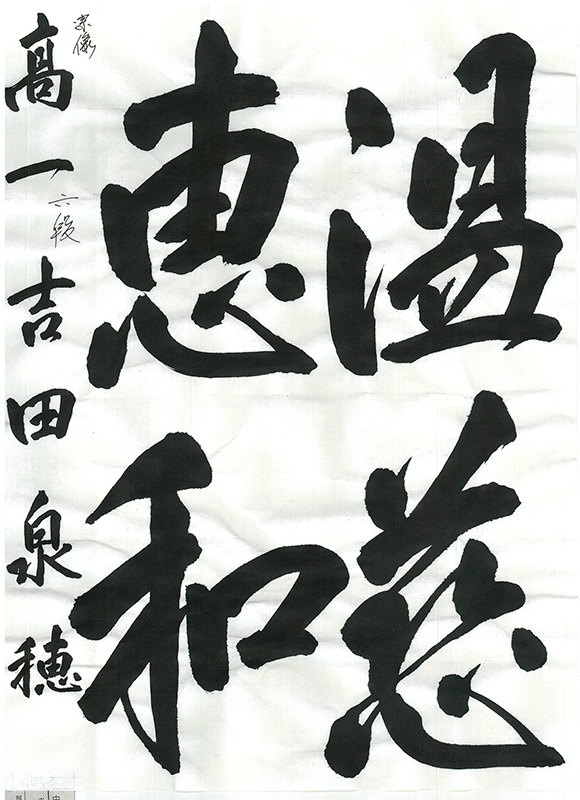 温慈
恵和
宗像
高一 六段 吉田泉穂